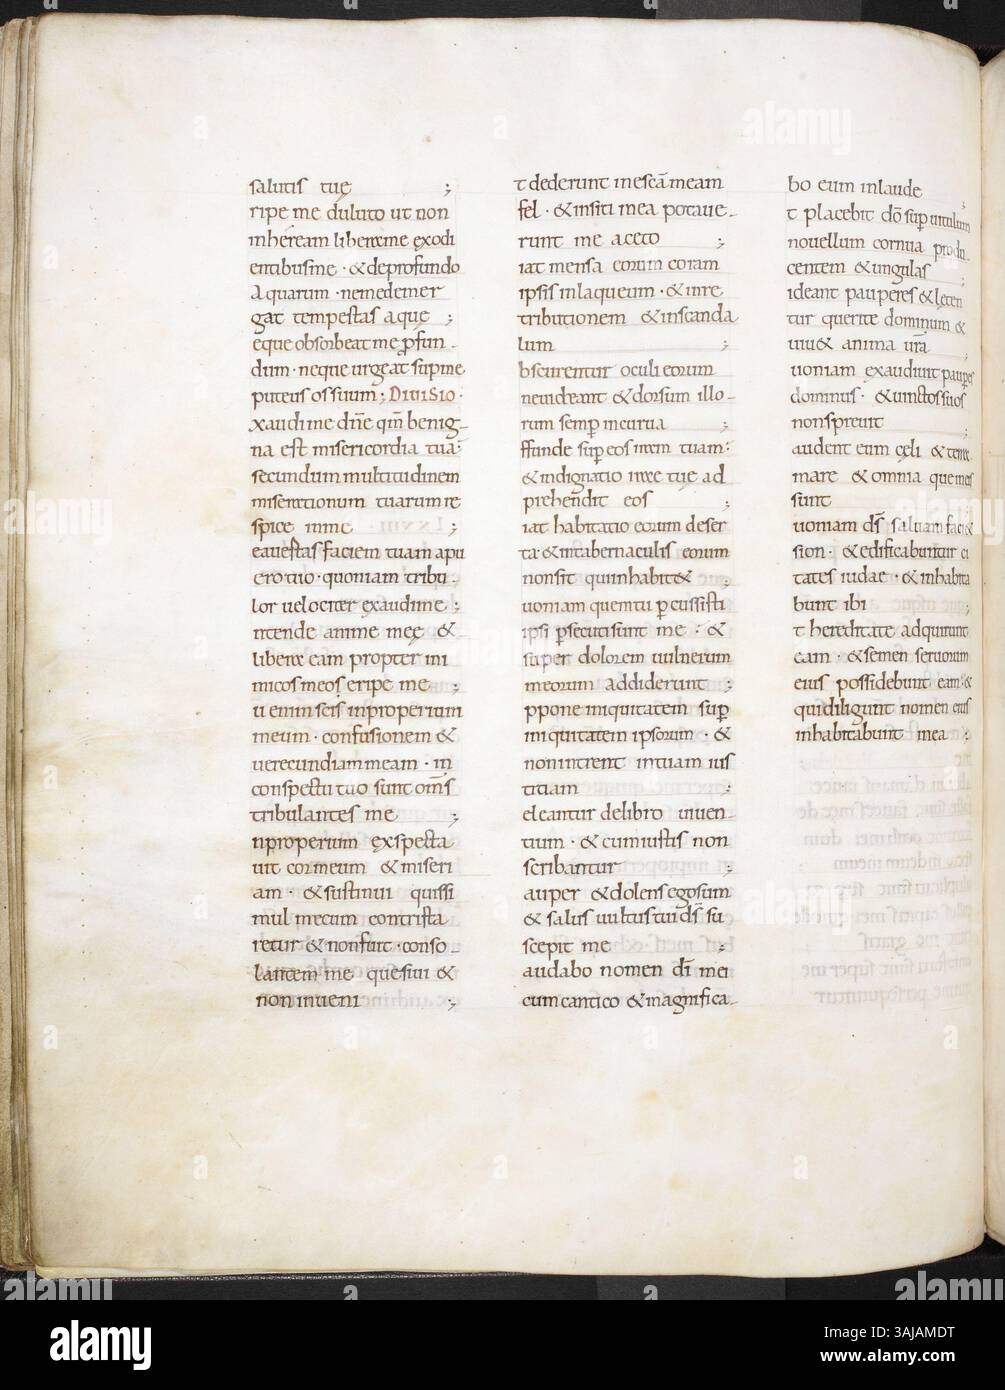 salutis tuę ;
ripe me de luto ut non
inhęream libera me ex odi
entibus me · & de profundo
Aquarum · ne me demer
gat tempestas aquę ;
eque obsorbeat me ꝓfun-
dum · neque urgeat sup me
puteus os suum ; DIUISIO ·
xaudi me dn̄e qm̄ benig-
na est misericordia tua :
secundum multitudinem
miserationum tuarum re
spice in me ;
e auestas faciem tuam a pu
ero tuo · quoniam tribu-
lor uelociter exaudi me ;
ntende animę meę &
libera eam propter ini
micos meos eripe me ;
u enim scis inproperium
meum · confusionem &
uerecundiam meam · in
conspectu tuo sunt om̄s
tribulantes me ;
nproperium exspecta
uit cor meum & miseri
am · & sustinui qui si
mul mecum contrista
retur & non fuit · conso-
lantem me quesiui &
non inueni ;
t dederunt in escā meam
fel · & in siti mea potaue-
runt me aceto ;
iat mensa eorum coram
ipsis in laqueum · & in re
tributionem & in scanda
lum ;
bscurentur oculi eorum
ne uideant & dorsum illo-
rum semp incurua ;
ffunde sup eos iram tuam :
& indignatio irę tuę ad
prehendit eos ;
iat habitatio eorum deser
ta · & in tabernaculis eorum
non sit qui inhabit&
uoniam quem tu ꝑcussisti
ipsi ꝑsecuti sunt me : &
super dolorem uulnerum
meorum addiderunt ;
ppone iniquitatem sup
iniquitatem ipsorum · &
non intrent in tuam ius
titiam ;
eleantur de libro uiuen-
tium · & cum iustis non
scribantur ;
auper & dolens ego sum
& salus uultus tui d̄s su
scepit me ;
audabo nomen dī mei
cum cantico & magnifica-
bo eum in laude ;
t placebit dō sup uitulum
nouellum cornua produ-
centem & ungulas ;
ideant pauperes & lęten
tur querite dominum &
uiu& anima ur̄a ;
uoniam exaudiuit pauperes
dominus · & uinctos suos
non spreuit ;
audent eum cęli & terra
mare & omnia que in eis
sunt
uoniam d̄s saluam faci&
sion · & edificabuntur ci
tates iudae · & inhabita
bunt ibi
t hereditate adquirunt
eam · & semen seruorum
eius possidebunt eam : &
qui diligunt nomen eius
inhabitabunt in ea ;
alamy
a
www.alamy.com
Image ID: 2AJAMDT